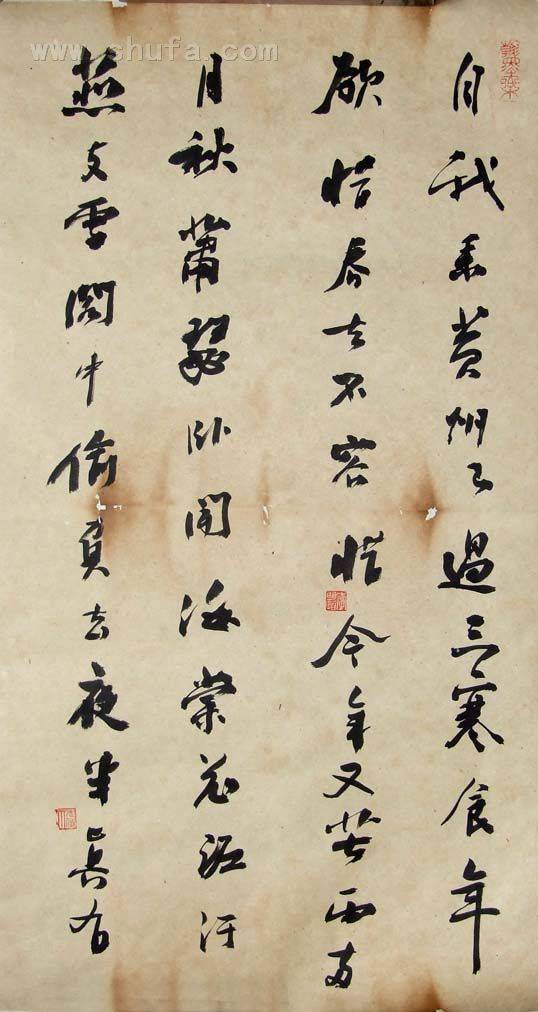 www.shufa.com
自我來黄州已過三寒食年
欲惜春去不容惜今年又苦雨两
月秋蕭瑟卧聞海棠花泥汙
燕支雪闇中偷負去夜半真有